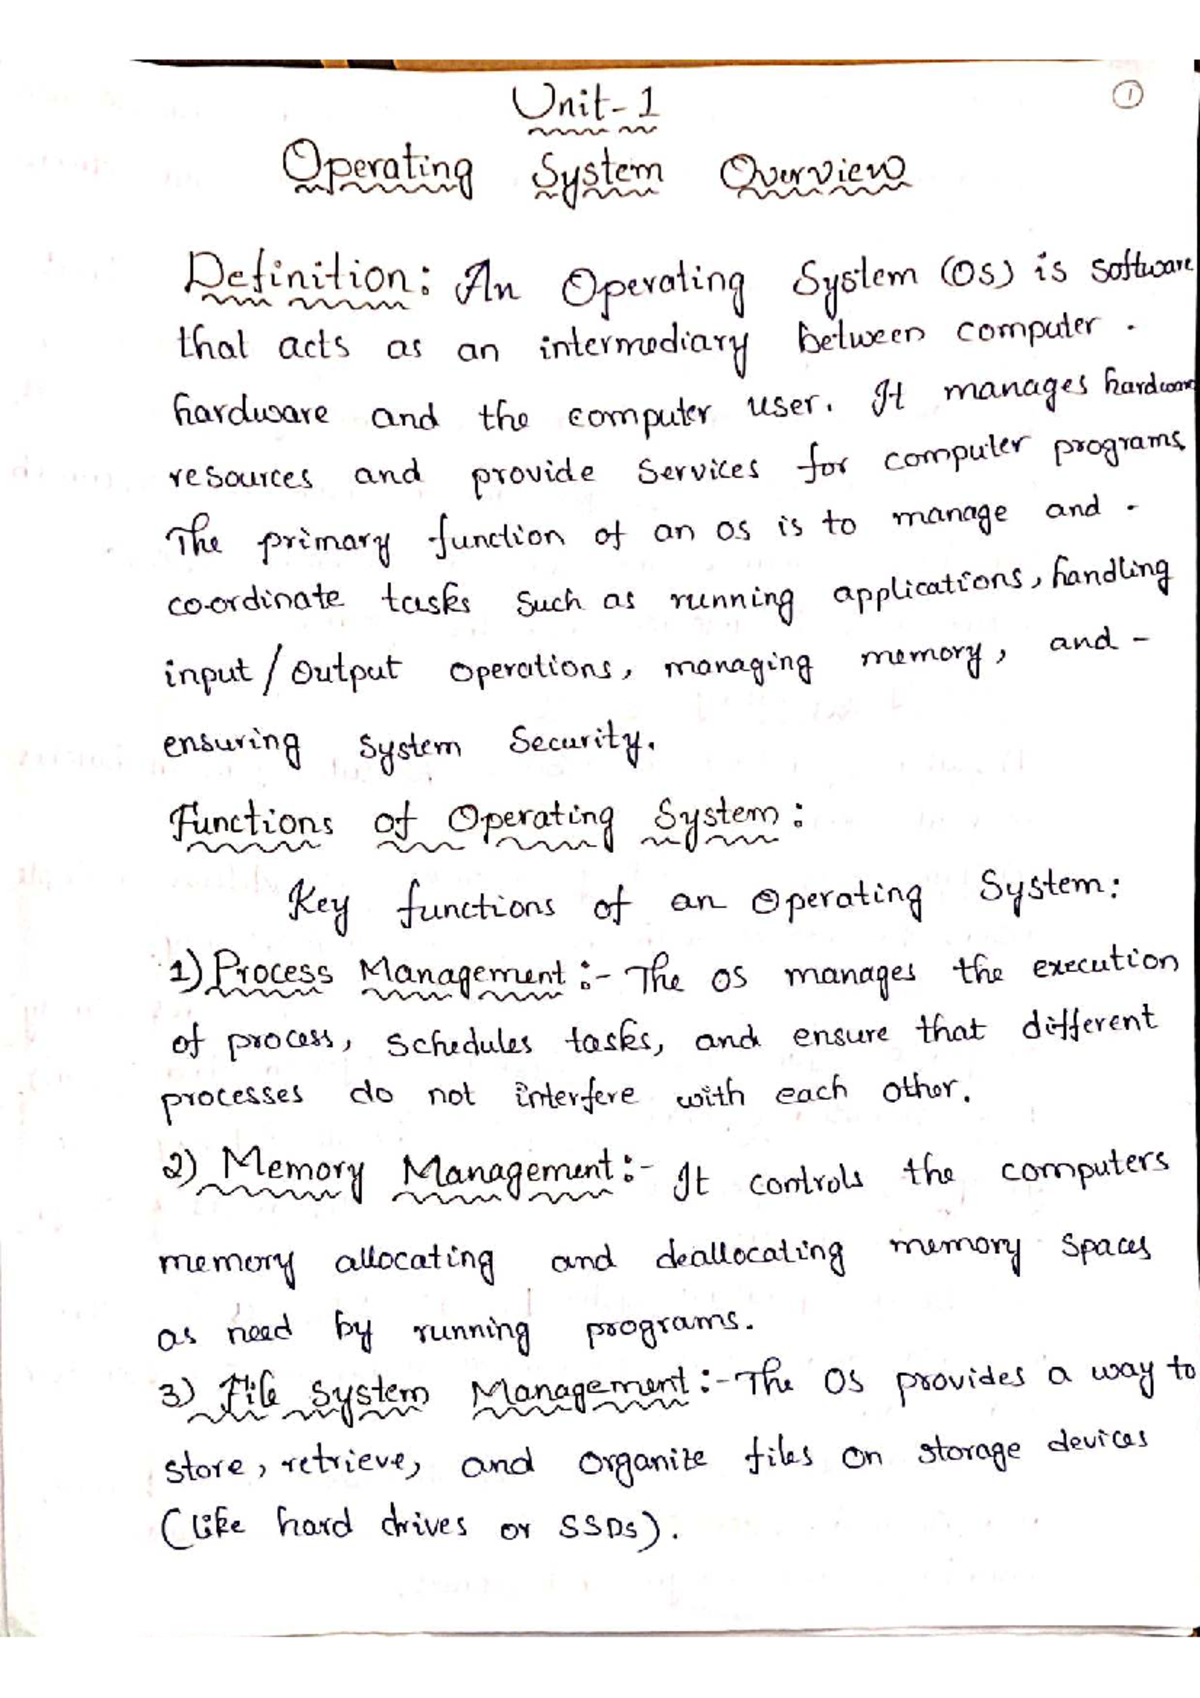 1
Unit-1
Operating System Overview
Definition: An Operating System (OS) is software
that acts as an intermediary between computer.
hardware and the computer user. It manages hardware
resources and provide services for computer programs
The primary function of an OS is to manage and -
co-ordinate tasks such as running applications, handling
input/output operations, managing memory, and -
ensuring system Security.
Functions of Operating System:
Key functions of an Operating System:
1) Process Management :- The OS manages the execution
of process, schedules tasks, and ensure that different
processes do not interfere with each other.
2) Memory Management :- It controls the computers
memory allocating and deallocating memory spaces
as need by running programs.
3) File System Management :- The OS provides a way to
store, retrieve, and organize files on storage devices
(like hard drives or SSDs).